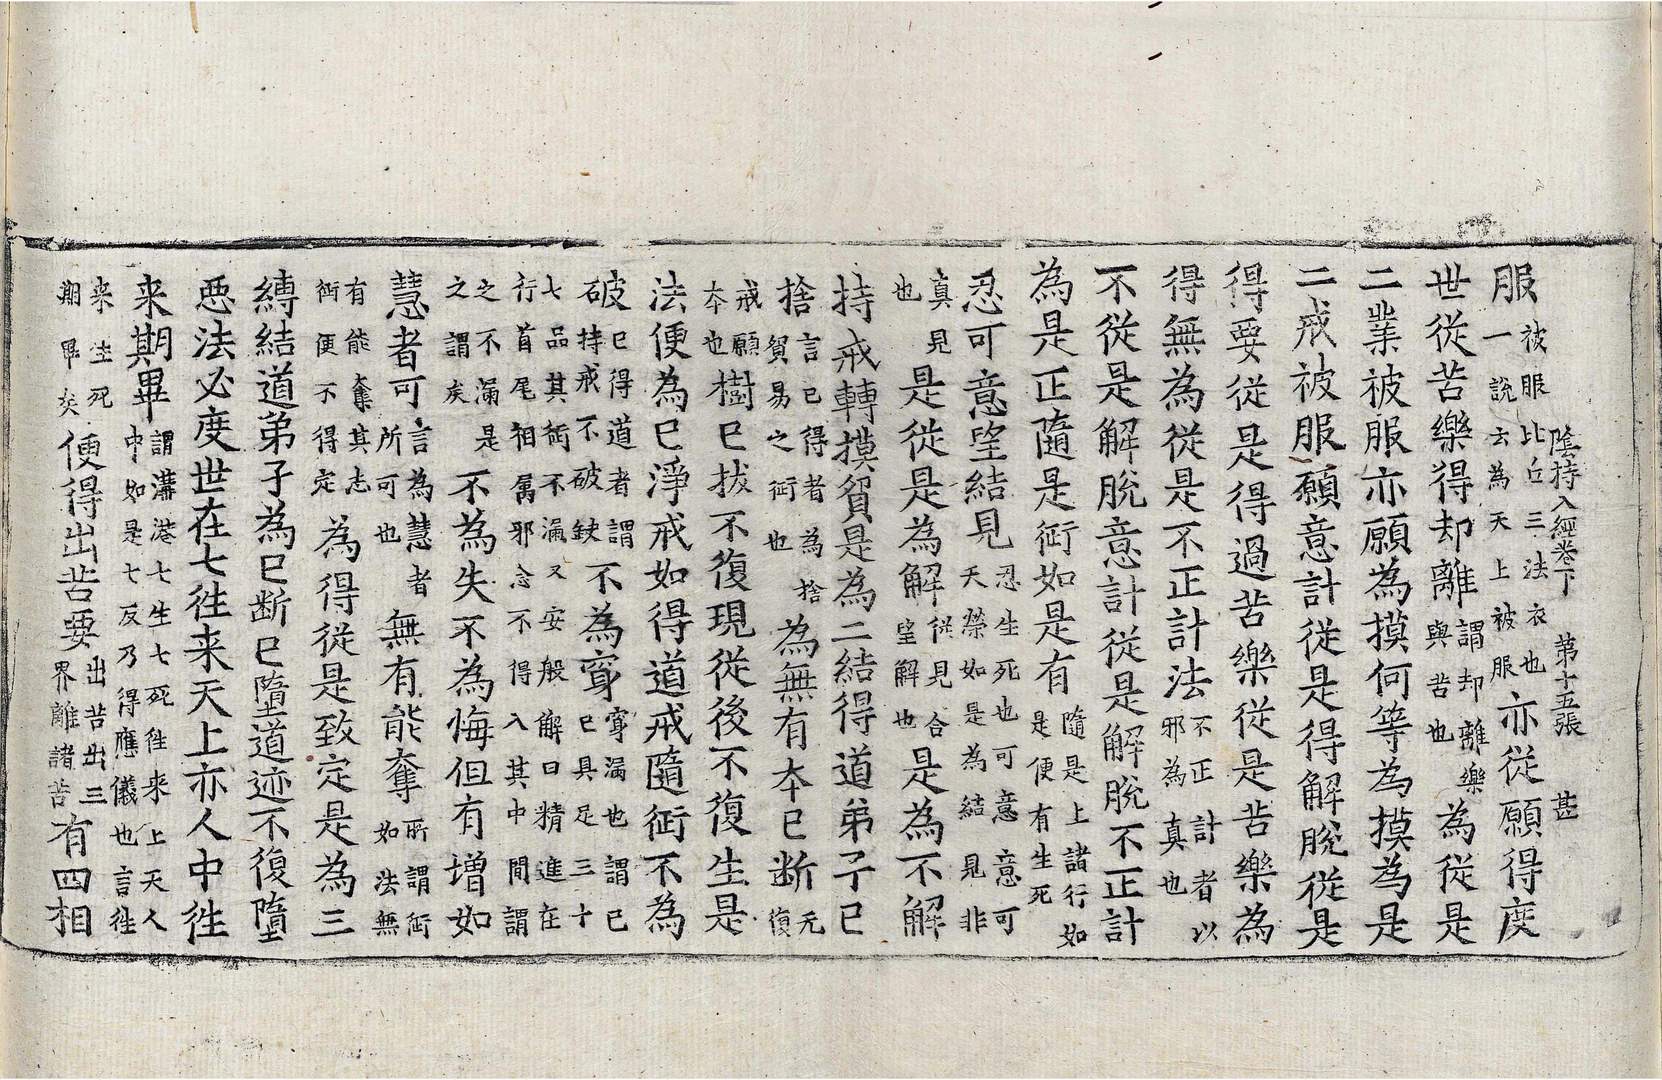 陰持入經卷下　第十五張　甚
服被服比丘三法衣也一說云為天上被服亦從願得度
世從苦樂得却離謂却離樂與苦也為從是
二業被服亦願為摸何等為摸為是
二戒被服願意計從是得解脫從是
得要從是得過苦樂從是苦樂為
得無為從是不正計法不正計者以邪為真也
不從是解脫意計從是解脫不正計
為是正隨是術如是有隨是上諸行如是便有生死
忍可意望結見忍生死也可意意可天榮如是為結見非
真見也是從是為解從見合望解也是為不解
持戒轉摸貿是為二結得道弟子已
捨言已得者為捨貿易之術也為無有本已斷无復
戒願本也樹已拔不復現從後不復生是
法便為已淨戒如得道戒隨術不為
破已得道者謂持戒不破缺不為穿穿漏也謂已已具足三十
七品其術不漏又安般解曰精進在行首尾相属邪念不得入其中間謂
之不漏是之謂矣不為失不為悔但有增如
慧者可言為慧者所可也無有能奪所謂術如法無
有能奪其志術便不得定為得從是致定是為三
縛結道弟子為已断已墮道迹不復墮
惡法必度世在七徃来天上亦人中徃
来期畢謂溝港七生七死徃来上天人中如是七反乃得應儀也言徃
来生死期畢矣便得出苦要出苦出三界離諸苦有四相